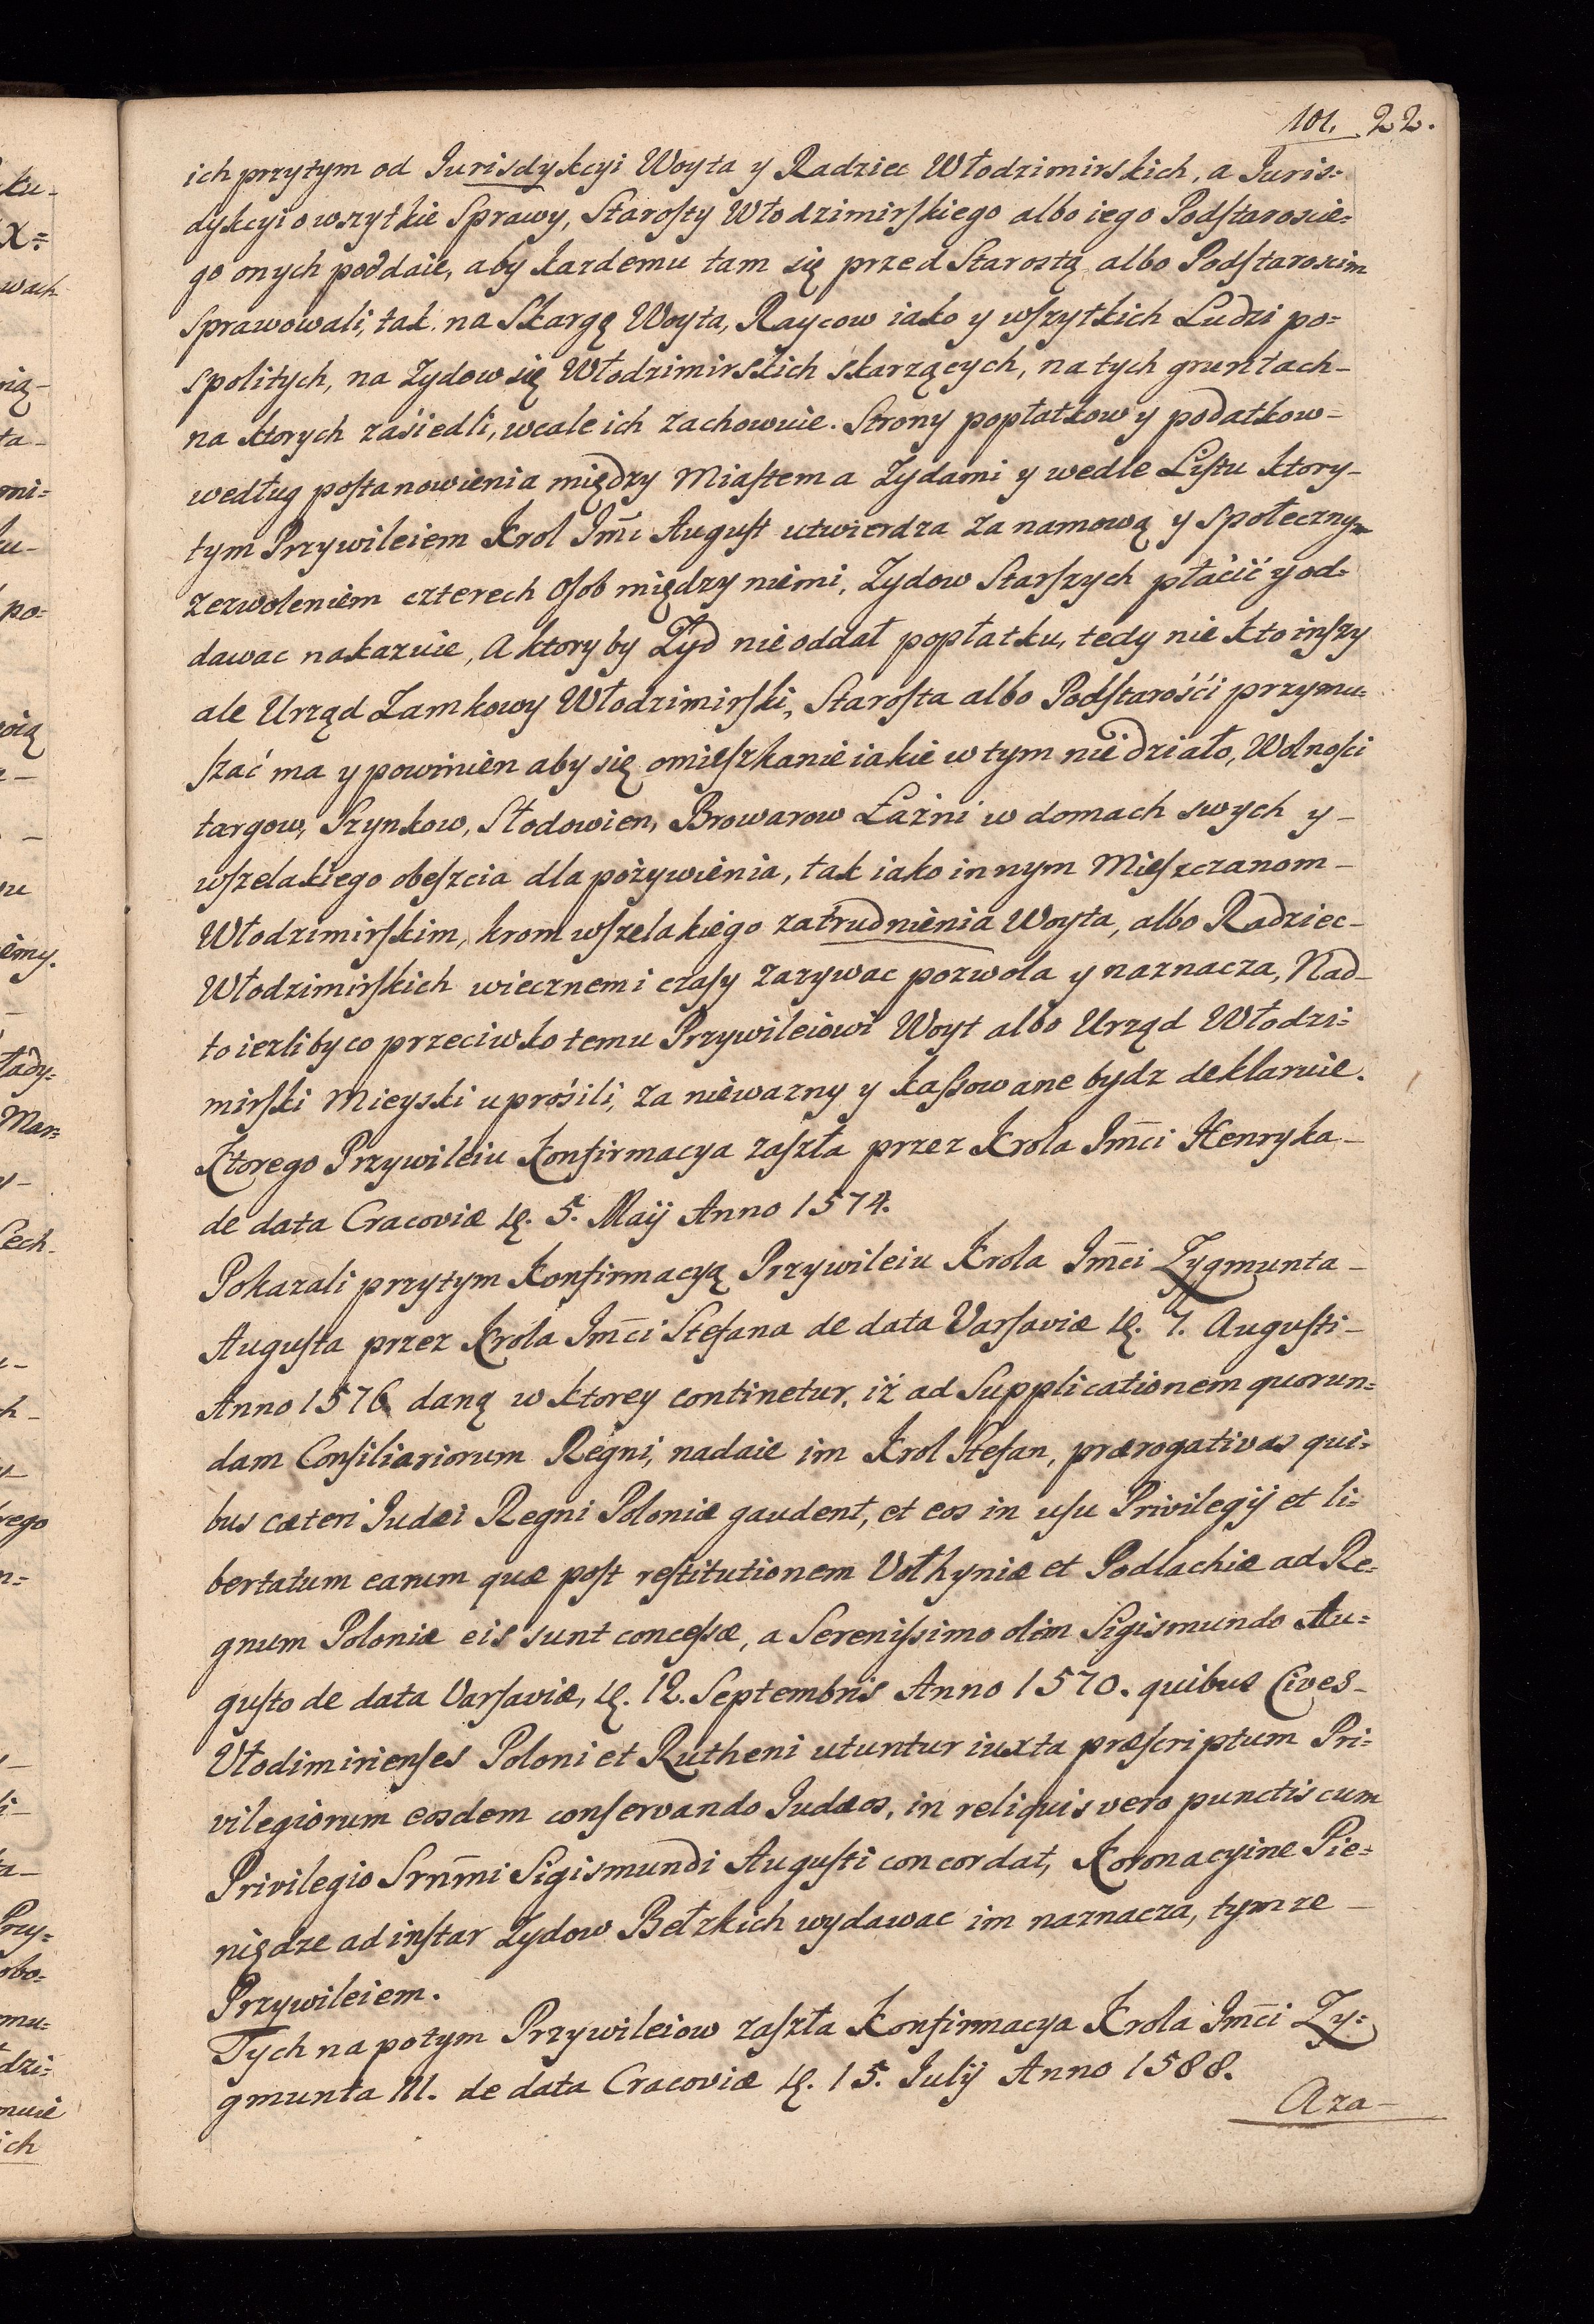 101. 22.
ich przytym od Jurisdykcyi Woyta y Radziec Włodzimirskich, a Juris=
dykcyi o wszytkie Sprawy, Starosty Włodzimirskiego albo iego Podstaroscie=
go onych poddaie, aby kazdemu tam się przed Starostą albo Podstaroscim
sprawowali, tak na Skargę Woyta, Raycow iako y wszytkich Ludzi po=
spolitych, na Zydow się Włodzimirskich skarzących, na tych gruntach –
na ktorych zásiedli, wcale ich zachowuie. Strony popłatkow y podatkow –
według postanowienia między Miastem a Zydami y wedle Listu ktory –
tym Przywileiem Krol Jmći August utwierdza za namową y społecznym
zezwoleniem czterech Osob między niemi, Zydow Starszych płácić y od=
dawac nakazuie, A ktory by Zyd nie oddał popłatku, tedy nie kto inszy
ale Urząd Zamkowy Włodzimirski, Starosta albo Podstarośći przymu=
szać ma y powinien aby się omieszkanie iakie w tym nie działo, Wolnosci
targow, Szynkow, Słodowien, Browarow Łaźni w domach swych y –
wszelakiego obeszcia dla pożywienia, tak iako innym Mieszczanom –
Włodzimirskim, krom wszelakiego zatrudnienia Woyta, albo Radziec –
Włodzimirskich wiecznemi czasy zazywac pozwola y naznacza, Nad –
to iezliby co przeciwko temu Przywileiowi Woyt albo Urząd Włodzi=
mirski Mieyski uprośili, za niewazny y kassowane bydz deklaruie.
Ktorego Przywileiu Konfirmacya zaszła przez Krola Jmći Henryka –
de data Cracoviæ d. 5. Maij Anno 1574.
Pokazali przytym Konfirmacyą Przywileiu Krola Jmći Zygmunta –
Augusta przez Krola Jmći Stefana de data Varsaviæ d. 7. Augusti –
Anno 1576 daną w ktorey continetur, iż ad Supplicationem quorun=
dam Consiliariorum Regni, nadaie im Krol Stefan, prærogativas qui=
bus cæteri Judæi Regni Poloniæ gaudent, et eos in usu Privilegij et li=
bertatum earum quæ post restitutionem Vołhyniæ et Podlachiæ ad Re=
gnum Poloniæ eis sunt concessæ, a Serenissimo olim Sigismundo Au=
gusto de data Varsaviæ, d. 12. Septembris Anno 1570. quibus Cives –
Vłodimirienses Poloni et Rutheni utuntur iuxta præscriptum Pri=
vilegiorum eosdem conservando Judæos, in reliquis vero punctis cum
Privilegio Srnmi Sigismundi Augusti concordat, Koronacyine Pie=
niędze ad instar Zydow Bełzkich wydawac im naznacza, tymze –
Przywileiem.
Tych na potym Przywileiow zaszła Konfirmacya Krola Jmći Zy=
gmunta III. de data Cracoviæ d. 15. Julij Anno 1588.
A za –